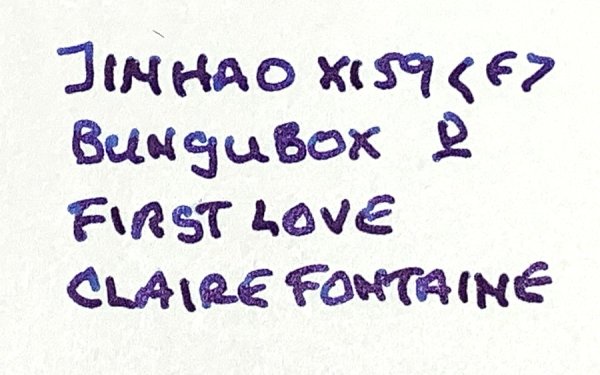 JINHAO X159 <F>
BUNGUBOX
FIRST LOVE
CLAIREFONTAINE